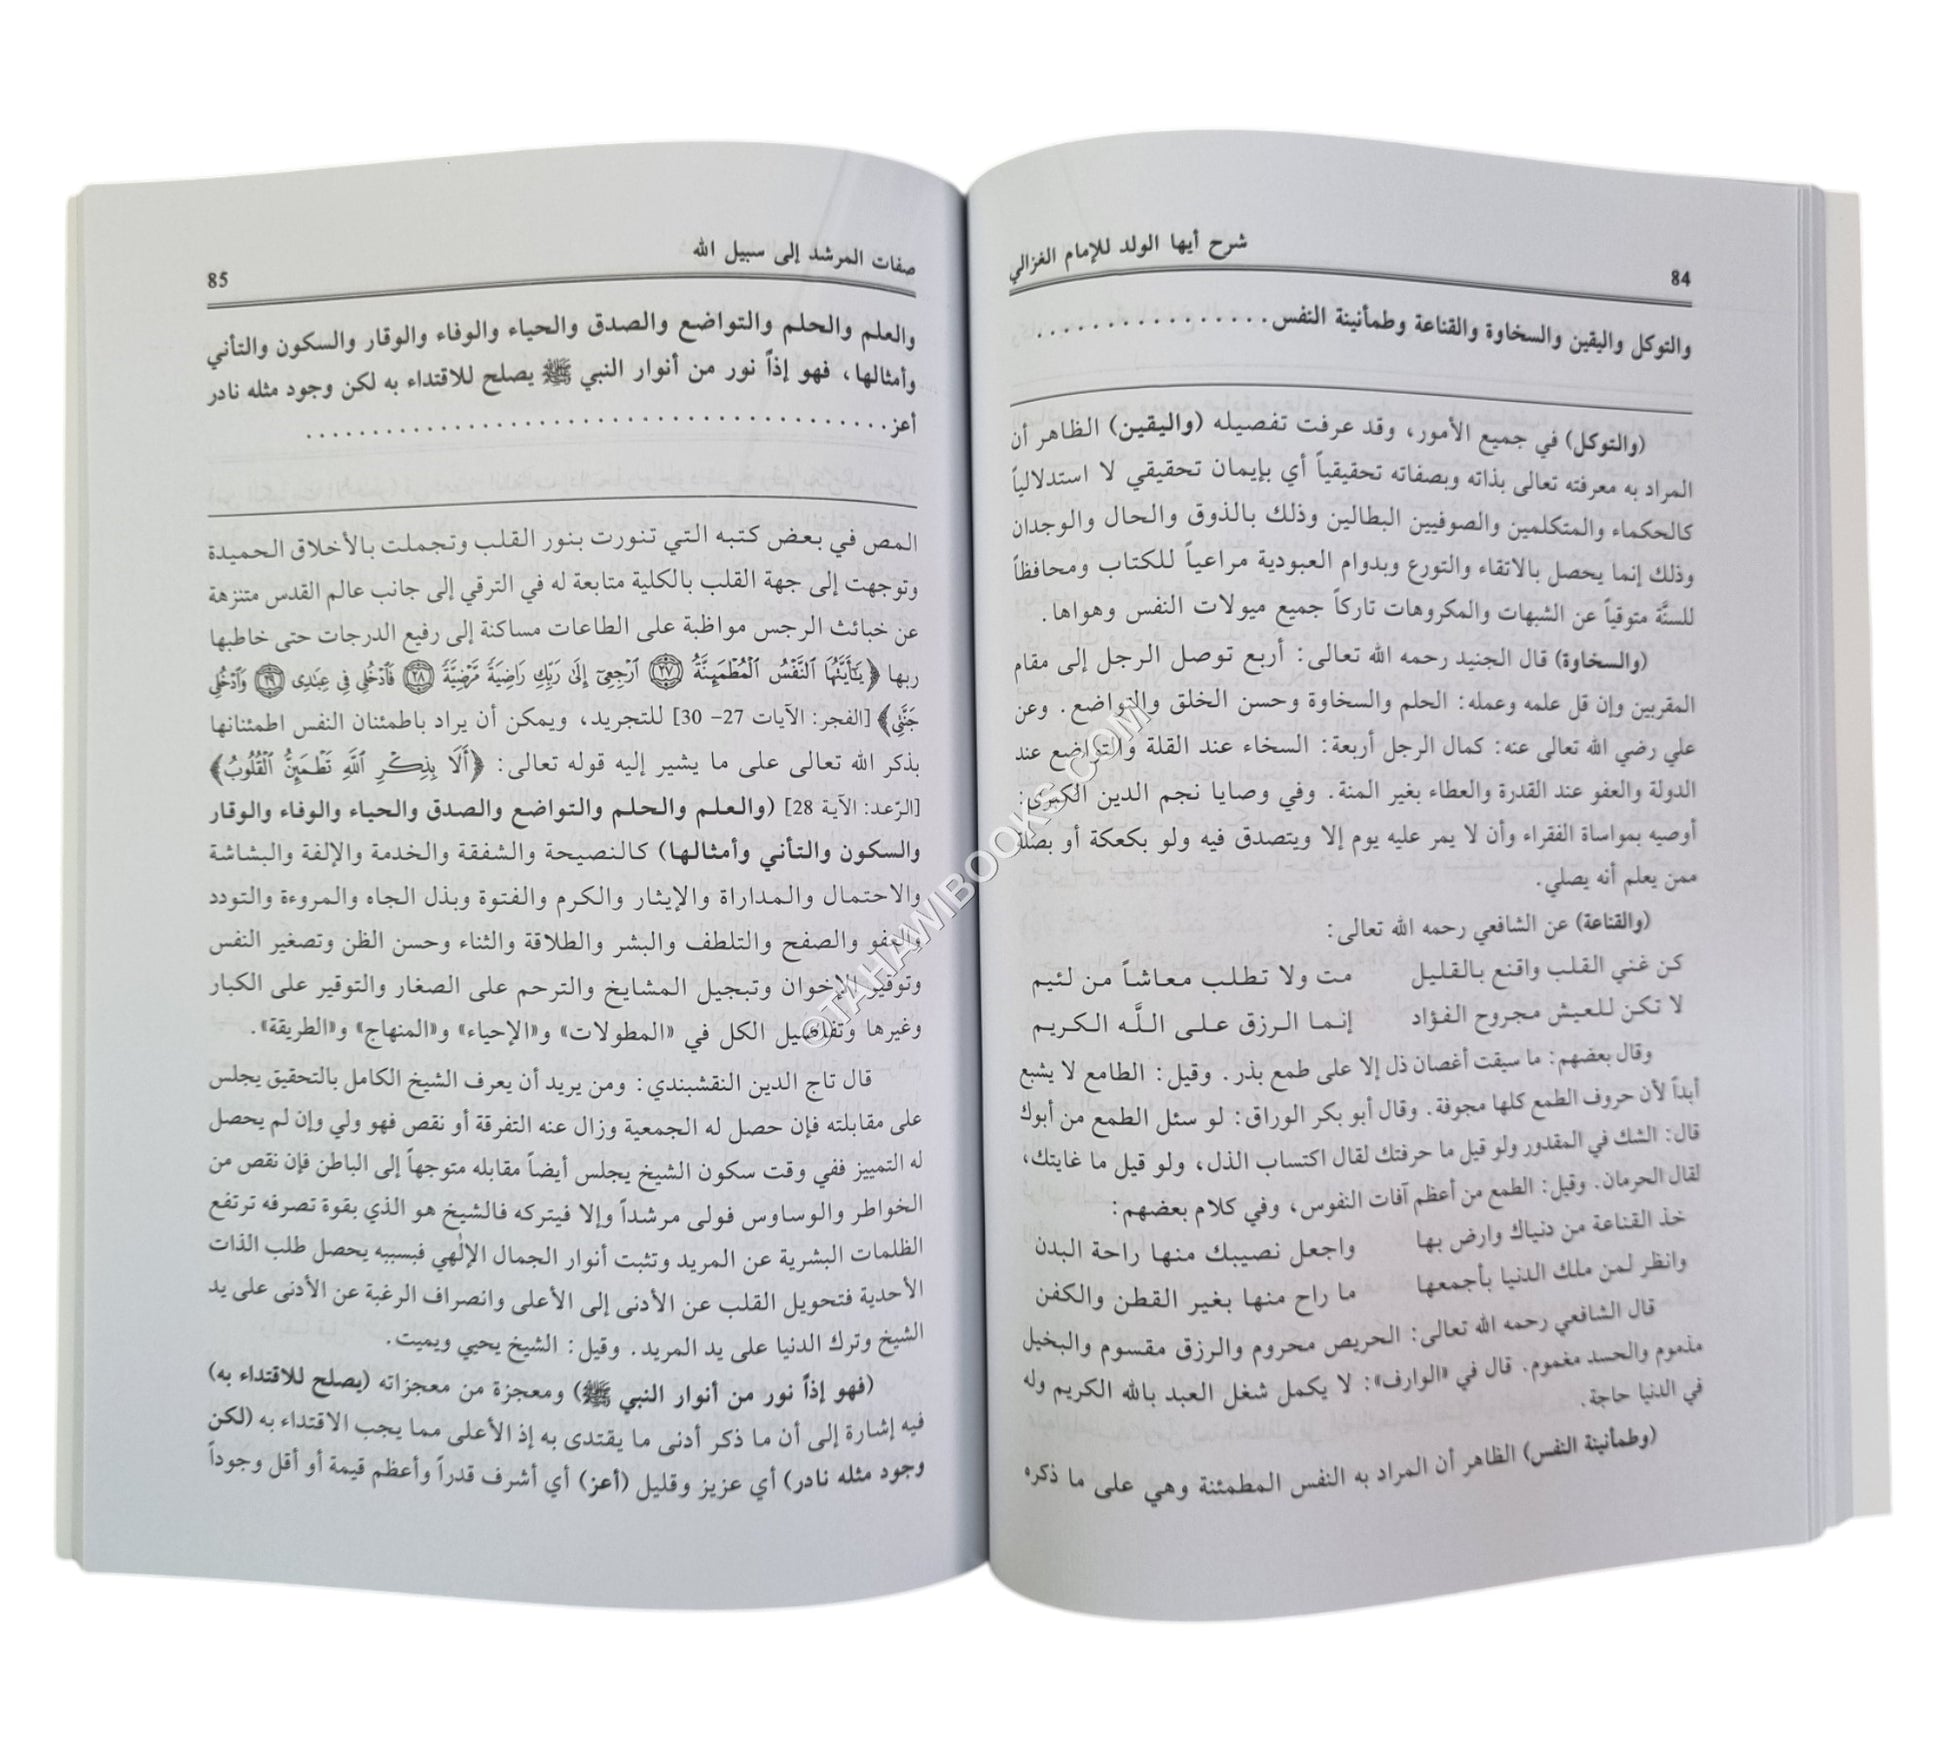 84
شرح أيها الولد للإمام الغزالي
والتوكل واليقين والسخاوة والقناعة وطمأنينة النفس. . . . . . . . . . . . . . . . .
(والتوكل) في جميع الأمور، وقد عرفت تفصيله (واليقين) الظاهر أن
المراد به معرفته تعالى بذاته وبصفاته تحقيقياً أي بإيمان تحقيقي لا استدلالياً
كالحكماء والمتكلمين والصوفيين البطالين وذلك بالذوق والحال والوجدان
وذلك إنما يحصل بالاتقاء والتورع وبدوام العبودية مراعياً للكتاب ومحافظاً
للسنَّة متوقياً عن الشبهات والمكروهات تاركاً جميع ميولات النفس وهواها.
(والسخاوة) قال الجنيد رحمه الله تعالى: أربع توصل الرجل إلى مقام
المقربين وإن قل علمه وعمله: الحلم والسخاوة وحسن الخلق والتواضع. وعن
علي رضي الله تعالى عنه: كمال الرجل أربعة: السخاء عند القلة والتواضع عند
الدولة والعفو عند القدرة والعطاء بغير المنة. وفي وصايا نجم الدين الكبرى:
أوصيه بمواساة الفقراء وأن لا يمر عليه يوم إلا ويتصدق فيه ولو بكعكة أو بصلة
ممن يعلم أنه يصلي.
(والقناعة) عن الشافعي رحمه الله تعالى:
كن غني القلب واقنع بالقليل مت ولا تطلب معاشاً من لئيم
لا تكن للعيش مجروح الفؤاد إنما الرزق على اللَّه الكريم
وقال بعضهم: ما سيقت أغصان ذل إلا على طمع بذر. وقيل: الطامع لا يشبع
أبداً لأن حروف الطمع كلها مجوفة. وقال أبو بكر الوراق: لو سئل الطمع من أبوك
قال: الشك في المقدور ولو قيل ما حرفتك لقال اكتساب الذل، ولو قيل ما غايتك،
لقال الحرمان. وقيل: الطمع من أعظم آفات النفوس، وفي كلام بعضهم:
خذ القناعة من دنياك وارض بها واجعل نصيبك منها راحة البدن
وانظر لمن ملك الدنيا بأجمعها ما راح منها بغير القطن والكفن
قال الشافعي رحمه الله تعالى: الحريص محروم والرزق مقسوم والبخيل
مذموم والحسد مغموم. قال في «الوارف»: لا يكمل شغل العبد بالله الكريم وله
في الدنيا حاجة.
(وطمأنينة النفس) الظاهر أن المراد به النفس المطمئنة وهي على ما ذكره
صفات المرشد إلى سبيل الله
85
والعلم والحلم والتواضع والصدق والحياء والوفاء والوقار والسكون والتأني
وأمثالها، فهو إذاً نور من أنوار النبي ﷺ يصلح للاقتداء به لكن وجود مثله نادر
أعز. . . . . . . . . . . . . . . . . . . . . . . . . . . . . . . . . . . . . . . . .
المص في بعض كتبه التي تنورت بنور القلب وتجملت بالأخلاق الحميدة
وتوجهت إلى جهة القلب بالكلية متابعة له في الترقي إلى جانب عالم القدس متنزهة
عن خبائث الرجس مواظبة على الطاعات مساكنة إلى رفيع الدرجات حتى خاطبها
ربها ﴿يَٰٓأَيَّتُهَا ٱلنَّفْسُ ٱلْمُطْمَئِنَّةُ ٢٧ ٱرْجِعِىٓ إِلَىٰ رَبِّكِ رَاضِيَةً مَّرْضِيَّةً ٢٨ فَٱدْخُلِى فِى عِبَٰدِى ٢٩ وَٱدْخُلِى
جَنَّتِى﴾ [الفجر: الآيات 27- 30] للتجريد، ويمكن أن يراد باطمئنان النفس اطمئنانها
بذكر الله تعالى على ما يشير إليه قوله تعالى: ﴿أَلَا بِذِكْرِ ٱللَّهِ تَطْمَئِنُّ ٱلْقُلُوبُ﴾
[الرّعد: الآية 28] (والعلم والحلم والتواضع والصدق والحياء والوفاء والوقار
والسكون والتأني وأمثالها) كالنصيحة والشفقة والخدمة والإلفة والبشاشة
والاحتمال والمداراة والإيثار والكرم والفتوة وبذل الجاه والمروءة والتودد
والعفو والصفح والتلطف والبشر والطلاقة والثناء وحسن الظن وتصغير النفس
وتوقير الإخوان وتبجيل المشايخ والترحم على الصغار والتوقير على الكبار
وغيرها وتفاصيل الكل في «المطولات» و«الإحياء» و«المنهاج» و«الطريقة».
قال تاج الدين النقشبندي: ومن يريد أن يعرف الشيخ الكامل بالتحقيق يجلس
على مقابلته فإن حصل له الجمعية وزال عنه التفرقة أو نقص فهو ولي وإن لم يحصل
له التمييز ففي وقت سكون الشيخ يجلس أيضاً مقابله متوجهاً إلى الباطن فإن نقص من
الخواطر والوساوس فولى مرشداً وإلا فيتركه فالشيخ هو الذي بقوة تصرفه ترتفع
الظلمات البشرية عن المريد وتثبت أنوار الجمال الإلٰهي فبسببه يحصل طلب الذات
الأحدية فتحويل القلب عن الأدنى إلى الأعلى وانصراف الرغبة عن الأدنى على يد
الشيخ وترك الدنيا على يد المريد. وقيل: الشيخ يحيي ويميت.
(فهو إذاً نور من أنوار النبي ﷺ) ومعجزة من معجزاته (يصلح للاقتداء به)
فيه إشارة إلى أن ما ذكر أدنى ما يقتدى به إذ الأعلى مما يجب الاقتداء به (لكن
وجود مثله نادر) أي عزيز وقليل (أعز) أي أشرف قدراً وأعظم قيمة أو أقل وجوداً
©TAHAWIBOOKS.COM